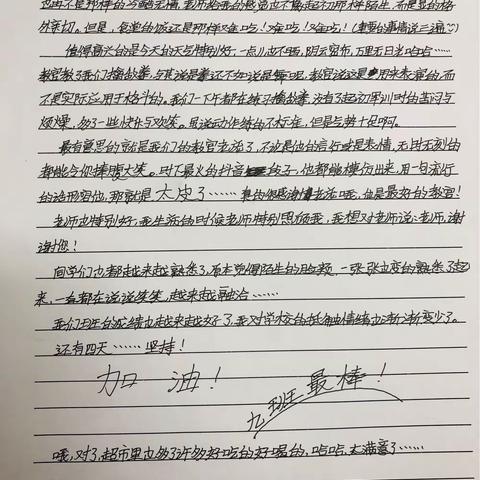 也再不是那样的与酷无情，教官给我的感觉也不像起初那样陌生，而是显的格
外亲切。但是，食堂的饭还是那样难吃！难吃！难吃！（重要的事情说三遍）
值得高兴的是今天的天气特别好，一点儿也不晒，阴云密布，万里无日光哈哈……
教官教了我们擒敌拳，与其说是拳还不如说是舞呢，教官说这是用来表演的，而
不是实际运用于格斗的。我们一下午都在练习擒敌拳，没有了起初军训时的苦闷与
烦燥，多了一些快乐与欢笑。虽说动作练的不标准，但是气势十足啊。
最有意思的就是我们的教官了，不论是他的言行或是表情，无时无刻的
都能令你捧腹大笑。时下最火的抖音段子，他都能模仿出来，用一句流行
的话形容他，那就是 太皮了……真的很感谢遇到他呢，他是最好的教官！
老师也特别好，我生活的时候老师特别照顾我，我想对老师说：老师，谢
谢您！
同学们也都越来越熟悉了，原本觉得陌生的脸颊，一张张立变的熟悉了起
来，一看都在说说笑笑，越来越融洽……
我们班的成绩也越来越好了，我对学校的抵触情绪也渐渐变少了。
还有四天……坚持！
加油！
九班最棒！
哦，对了，超市里也多了许多好吃的好喝的，哈哈，太满意了……